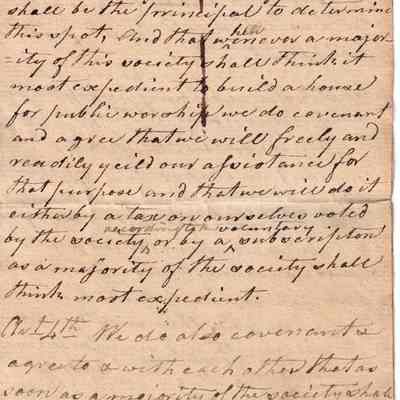 shall be the principal to determine
this spot, And that whenever a major-
=ity of this society shall think it
most expedient to build a house
for public worship we do covenant
and agree that we will freely and
readily yeild our assistance for
that purpose and that we will do it
either by a tax on ourselves voted
according to voluntary
by the society, or by a subscription
as a majority of the society shall
think most expedient.
Art 4th We do also covenant &
agree to & with each other that as
soon as a majority of the society shall